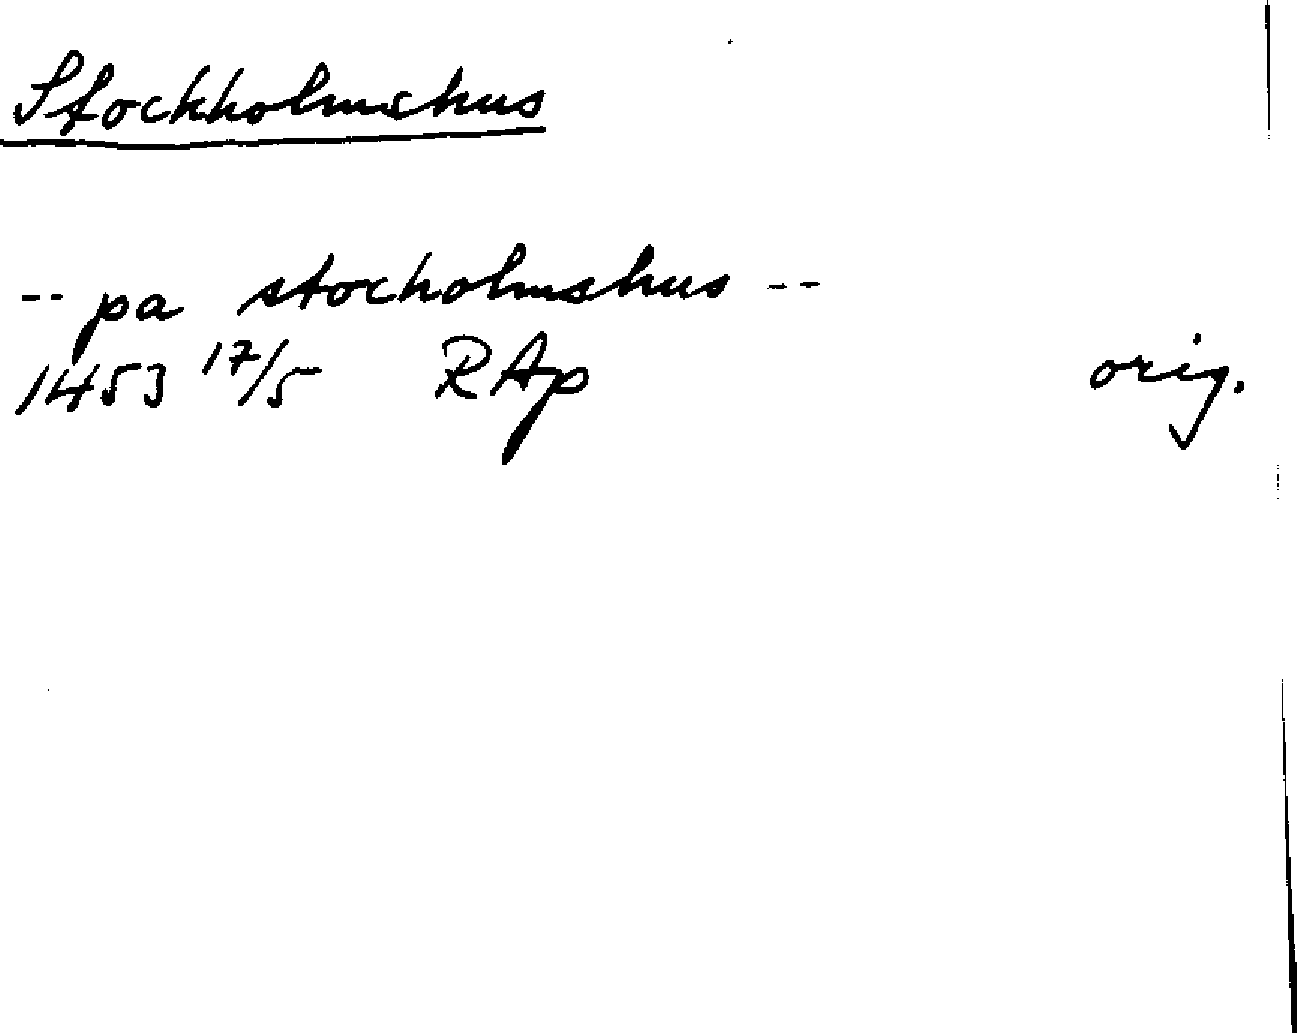 Stockholmshus
-- pa stocholmshus --
1453 17/5 RAp orig.